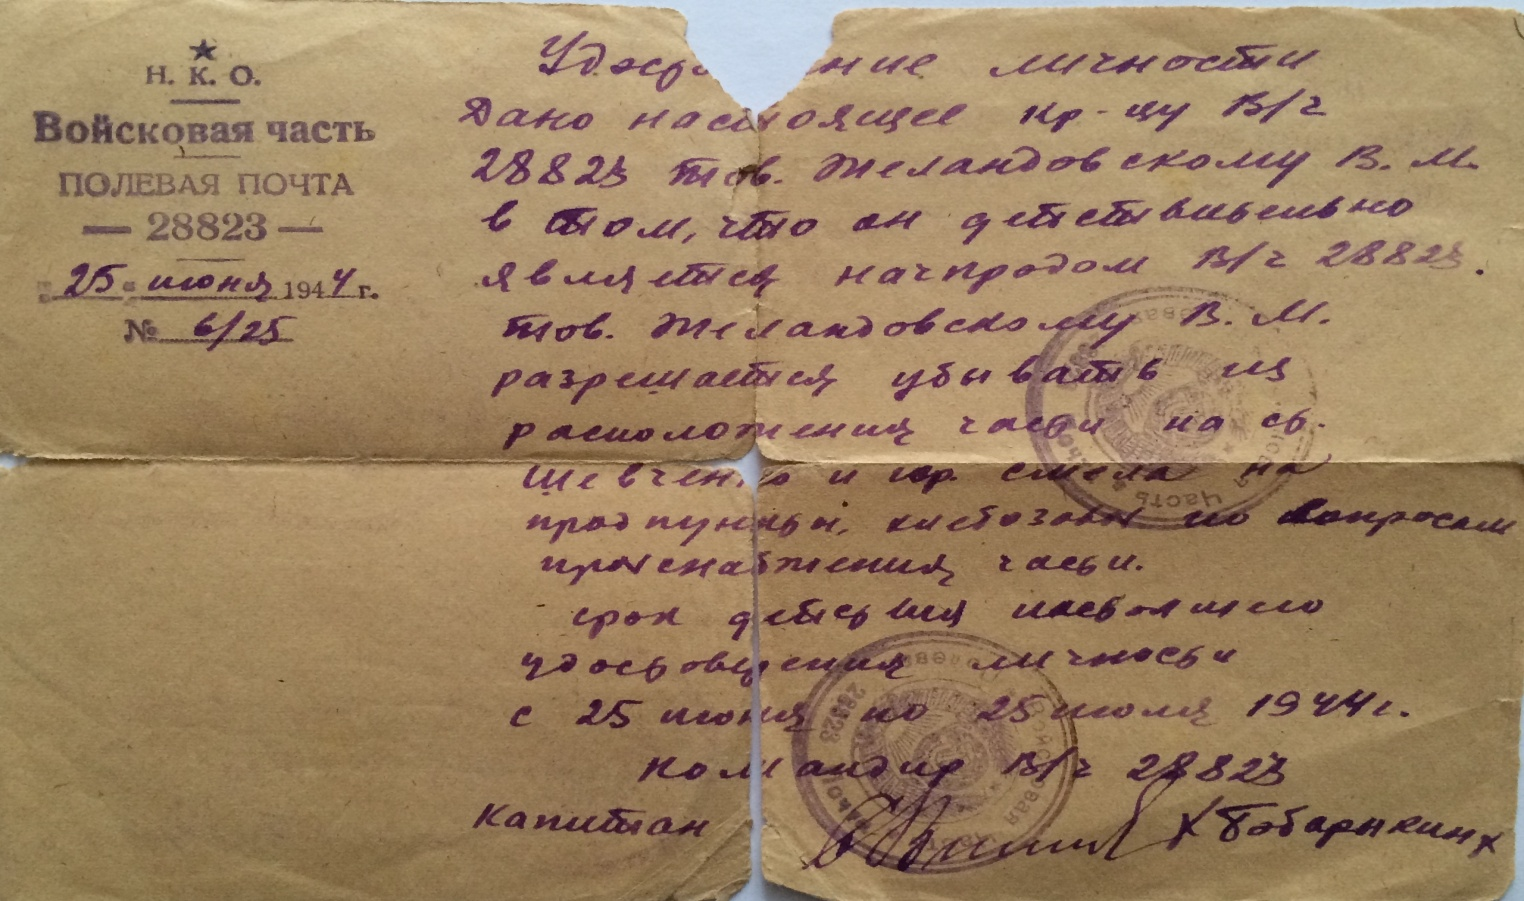 Н. К. О.
Войсковая часть
ПОЛЕВАЯ ПОЧТА
— 28823 —
"25" июня 1944 г.
№ 6/25
личности
Дано настоящее кр-цу В/ч
28823 тов. Желандовскому В. М.
в том, что он действительно
является начпродом В/ч 28823.
тов. Желандовскому В. М.
разрешается убывать из
расположения части на ст.
Шевченко и гор. Смела на
продпункты, по вопросам
продснабжения части.
срок действия настоящего
удостоверения личности
с 25 июня по 25 июля 1944 г.
Командир В/ч 28823
Капитан
Войсковая часть
28823